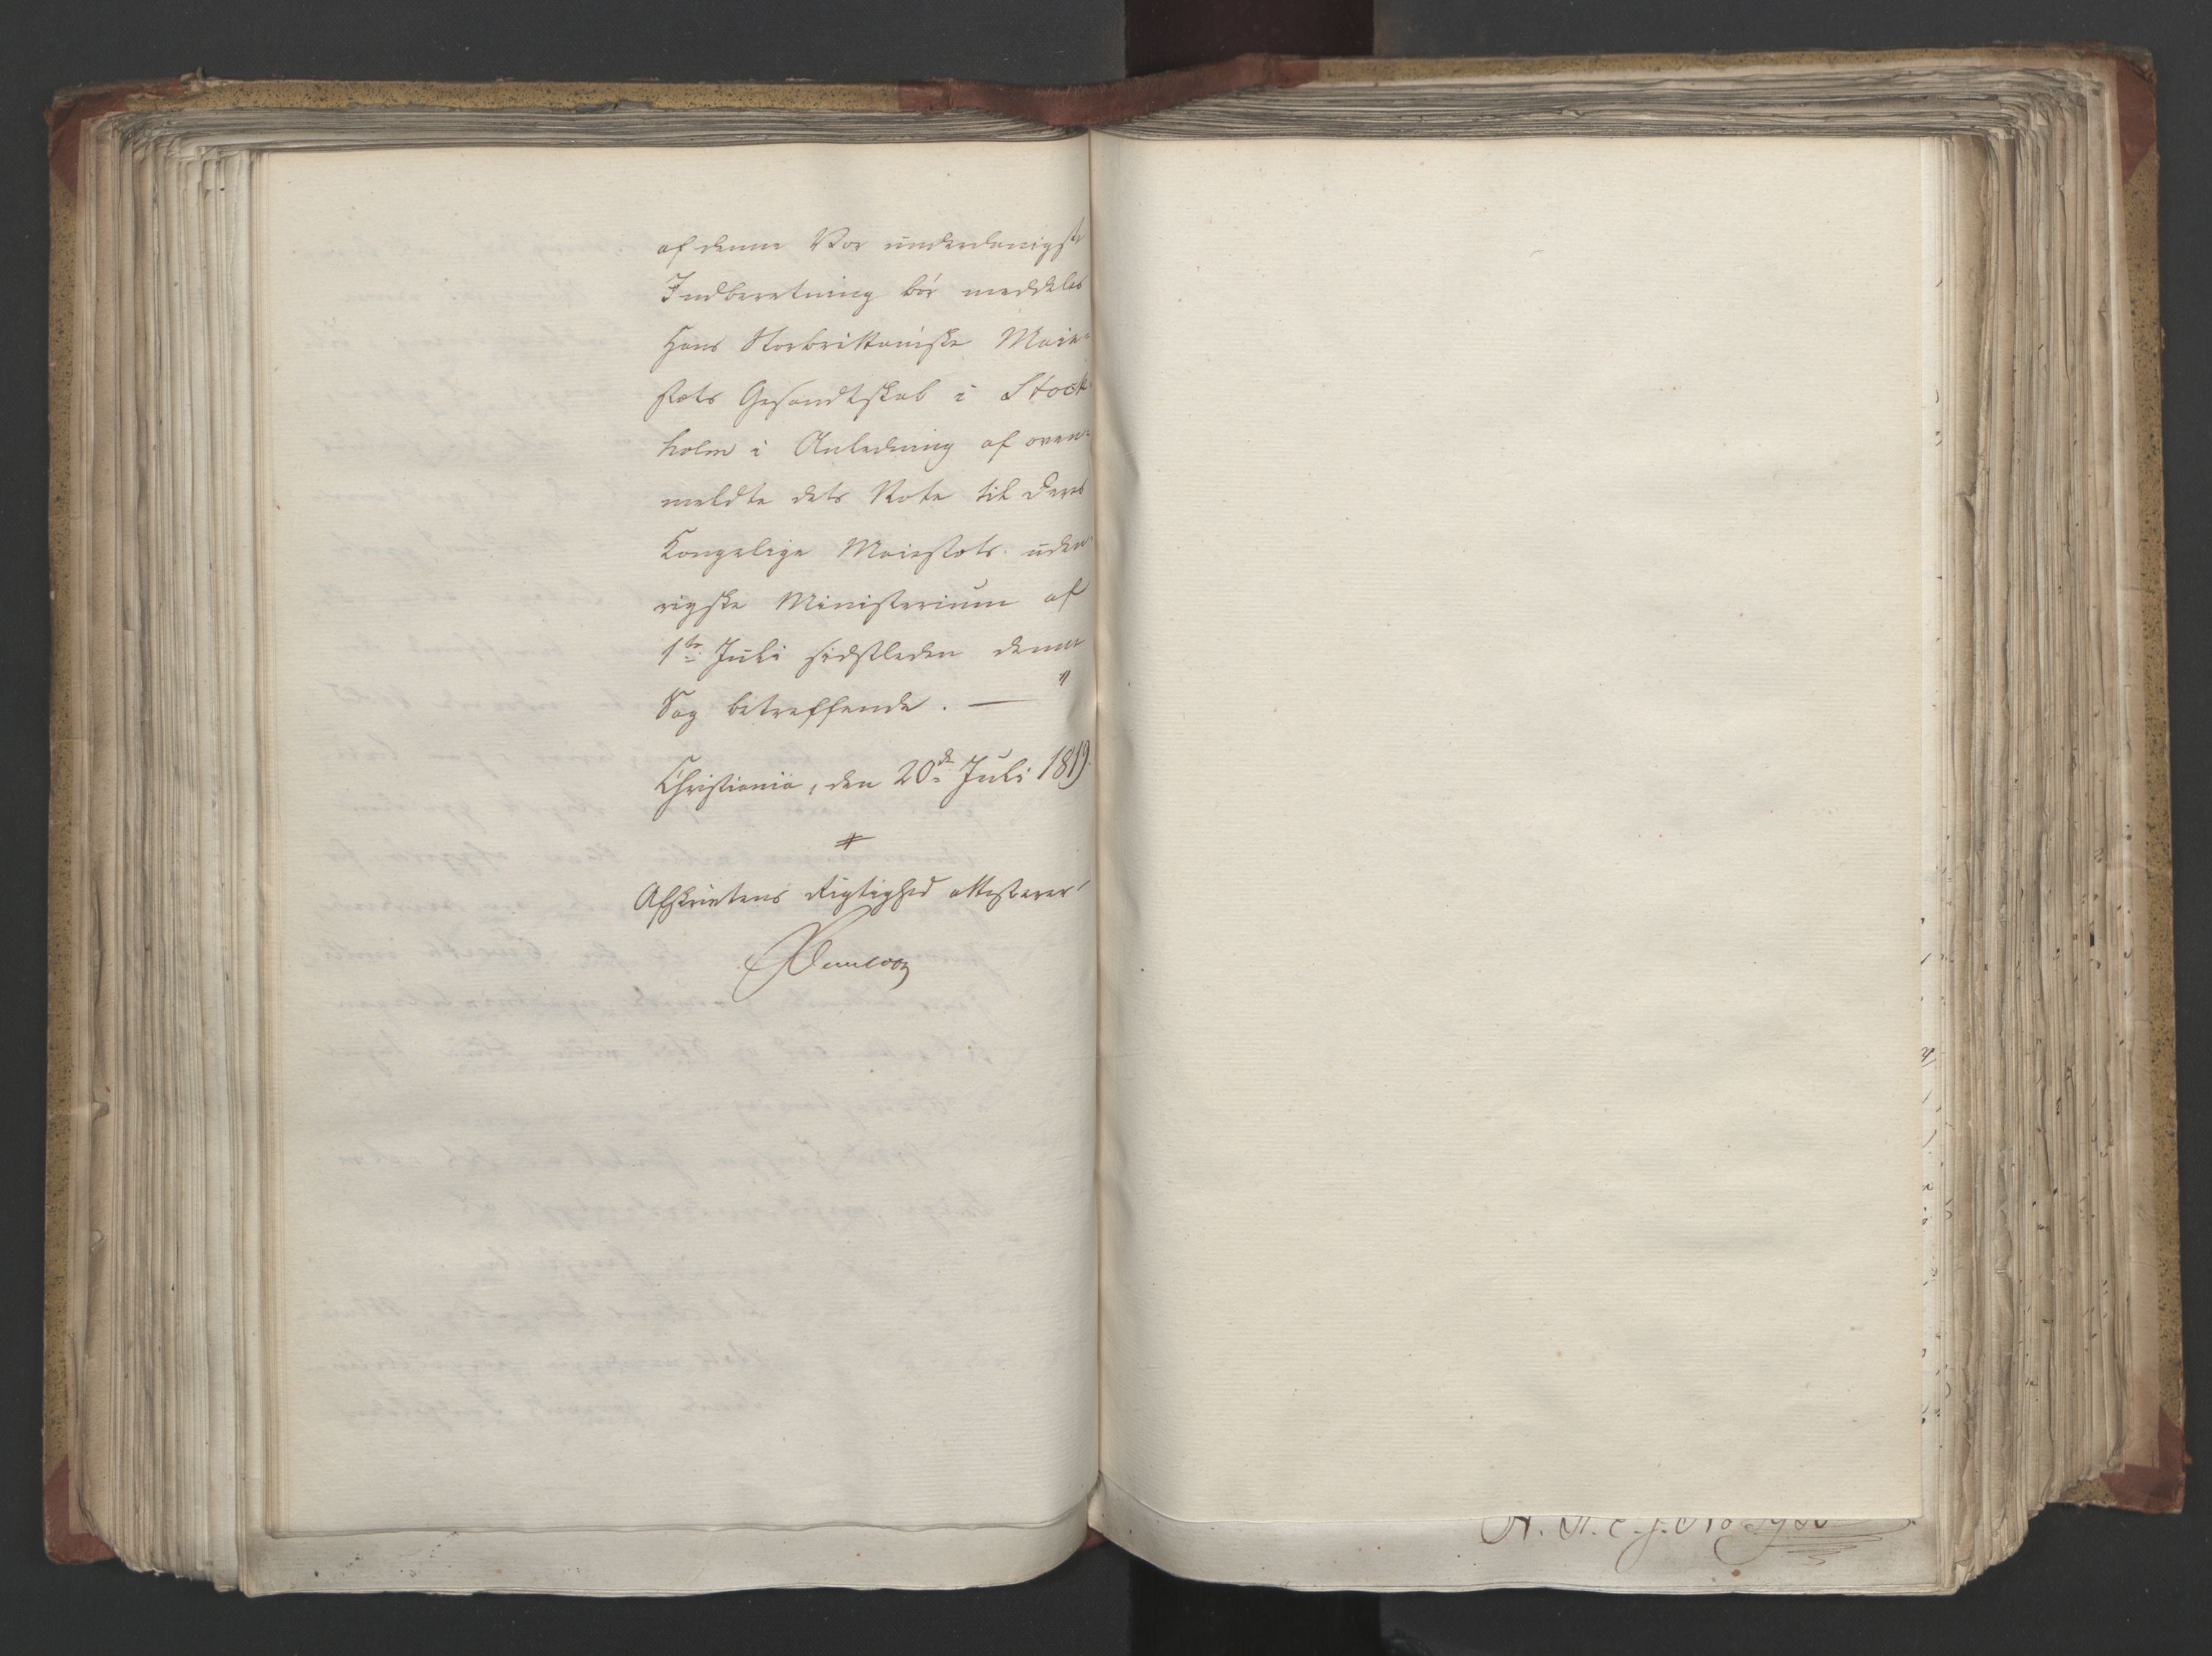 af denne Vor underdanigste
Indberetning bör meddeles
Hans Storbrittaniske Maie=
stæts Gesandtskab i Stock=
holm i Anledning af oven=
meldte dets Note til Deres
Kongelige Maiestæts uden=
rigske Ministerium af
1ste Juli sidstleden denne
Sag betreffende. —
Christiania, den 20de Juli 1819.
Afskriftens Rigtighed attesterer